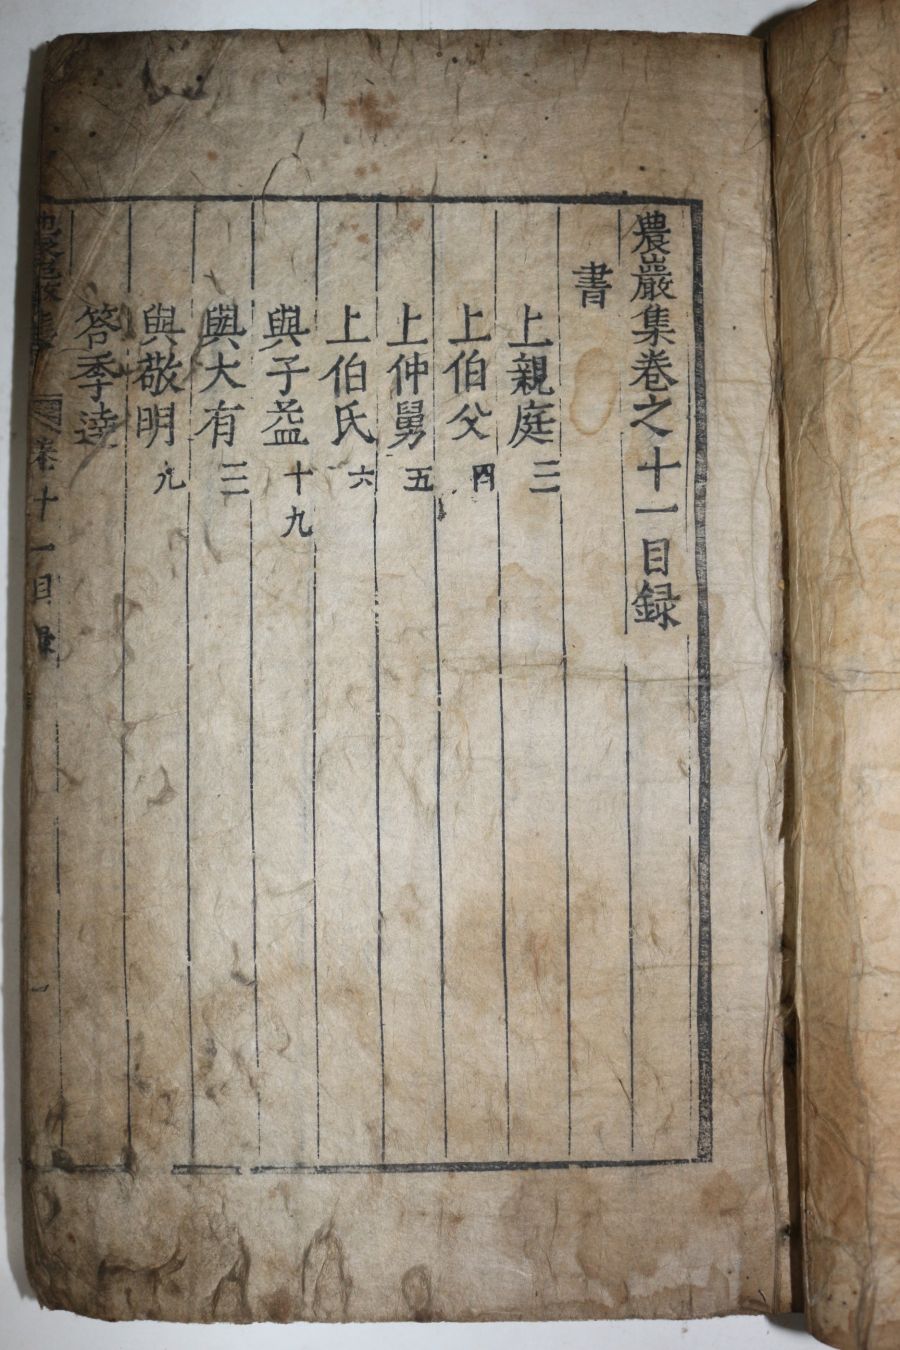 農巖集卷之十一目録
書
上親庭三
上伯父四
上仲舅五
上伯氏六
與子益十九
與大有三
與敬明九
答季達
農巖集 卷十一目録 一